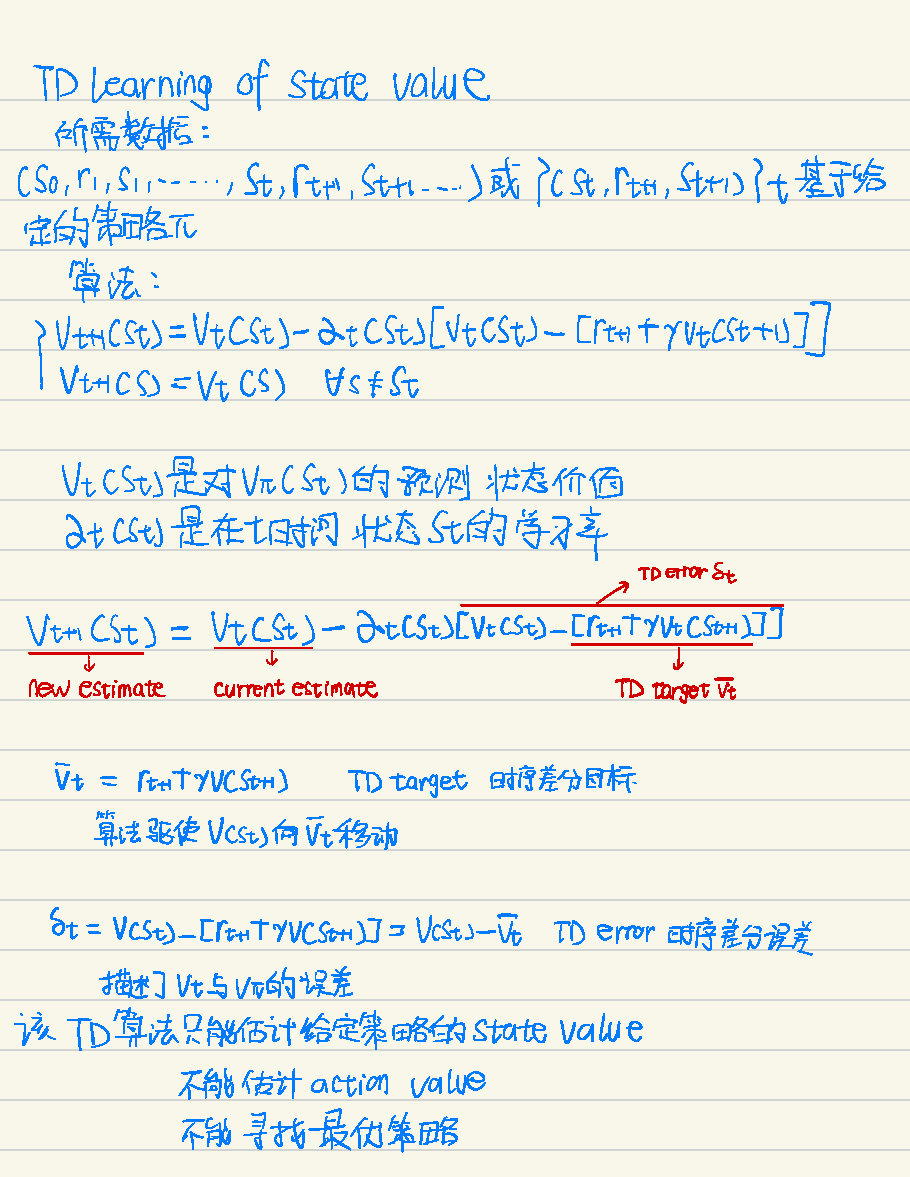 TD learning of state value
所需数据：
(S0, r1, S1, ......, St, rt+1, St+1 ....) 或 {(St, rt+1, St+1)}t 基于给
定的策略π
算法：
Vt+1(St) = Vt(St) - αt(St)[Vt(St) - [rt+1 + γVt(St+1)]]
Vt+1(S) = Vt(S) ∀s≠St
Vt(St)是对Vπ(St)的预测 状态价值
αt(St)是在t时间 状态St的学习率
TD error δt
Vt+1(St) = Vt(St) - αt(St)[Vt(St) - [rt+1 + γVt(St+1)]]
new estimate current estimate TD target V̄t
V̄t = rt+1 + γV(St+1) TD target 时序差分目标
算法驱使V(St)向V̄t移动
δt = V(St) - [rt+1 + γV(St+1)] = V(St) - V̄t TD error 时序差分误差
描述了Vt与Vπ的误差
该TD算法只能估计给定策略的state value
不能估计action value
不能寻找最优策略